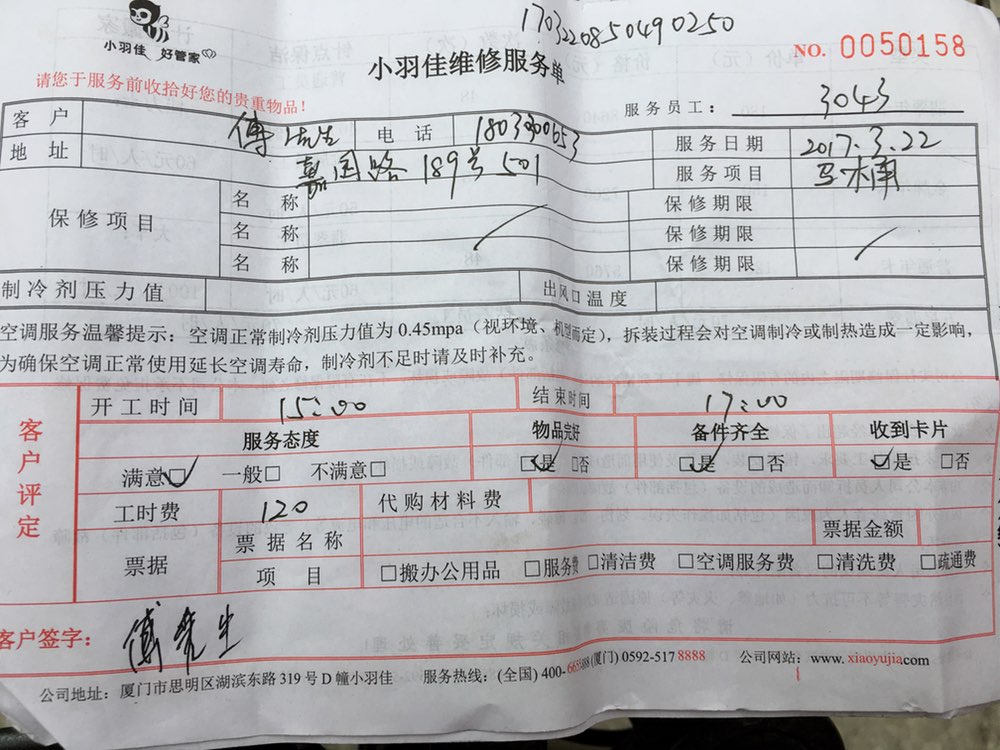 小羽佳 好管家
1703220850490250
小羽佳维修服务单
NO. 0050158
请您于服务前收拾好您的贵重物品！
服务员工： 3043
客户 傅先生 电话 服务日期 2017.3.22
地址 嘉园路189号501 服务项目
保修项目 名称 保修期限
名称 保修期限
名称 保修期限
制冷剂压力值 出风口温度
空调服务温馨提示：空调正常制冷剂压力值为 0.45mpa（视环境、机型而定），拆装过程会对空调制冷或制热造成一定影响，
为确保空调正常使用延长空调寿命，制冷剂不足时请及时补充。
客户评定
开工时间 15:00 结束时间 17:00
服务态度 物品完好 备件齐全 收到卡片
满意☑ 一般□ 不满意□ ☑是 □否 ☑是 □否 ☑是 □否
工时费 120 代购材料费
票据 票据名称 票据金额
项目 □搬办公用品 □服务费 □清洁费 □空调服务费 □清洗费 □疏通费
客户签字： 傅先生
公司地址：厦门市思明区湖滨东路 319 号 D 幢小羽佳 服务热线：(全国) 400- (厦门) 0592-517 8888 公司网站：www.xiaoyujia.com